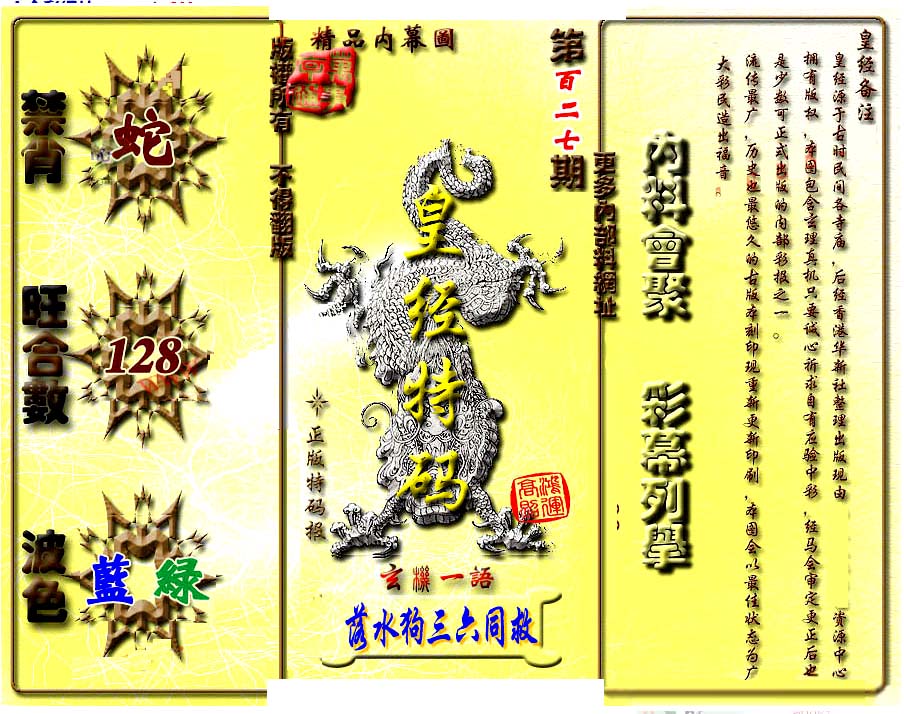 禁肖
蛇
旺合數
128
波色
藍 綠
版權所有 不得翻版
精品内幕圖
第百二七期
皇经特码
正版特码报
鴻運高照
玄機一語
落水狗三六同救
更多内部料網址
内料會聚 彩幕列舉
皇经备注
皇经源于古时民间各寺庙,后经香港华新社整理出版现由 资源中心
拥有版权,本图包含玄理真机只要诚心祈求自有应验中彩,经马会审定更正后也
是少数可正式出版的内部彩报之一。
流传最广,历史也最悠久的古版本刻印现重新更新印刷,本图会以最佳状态为广
大彩民造出福音